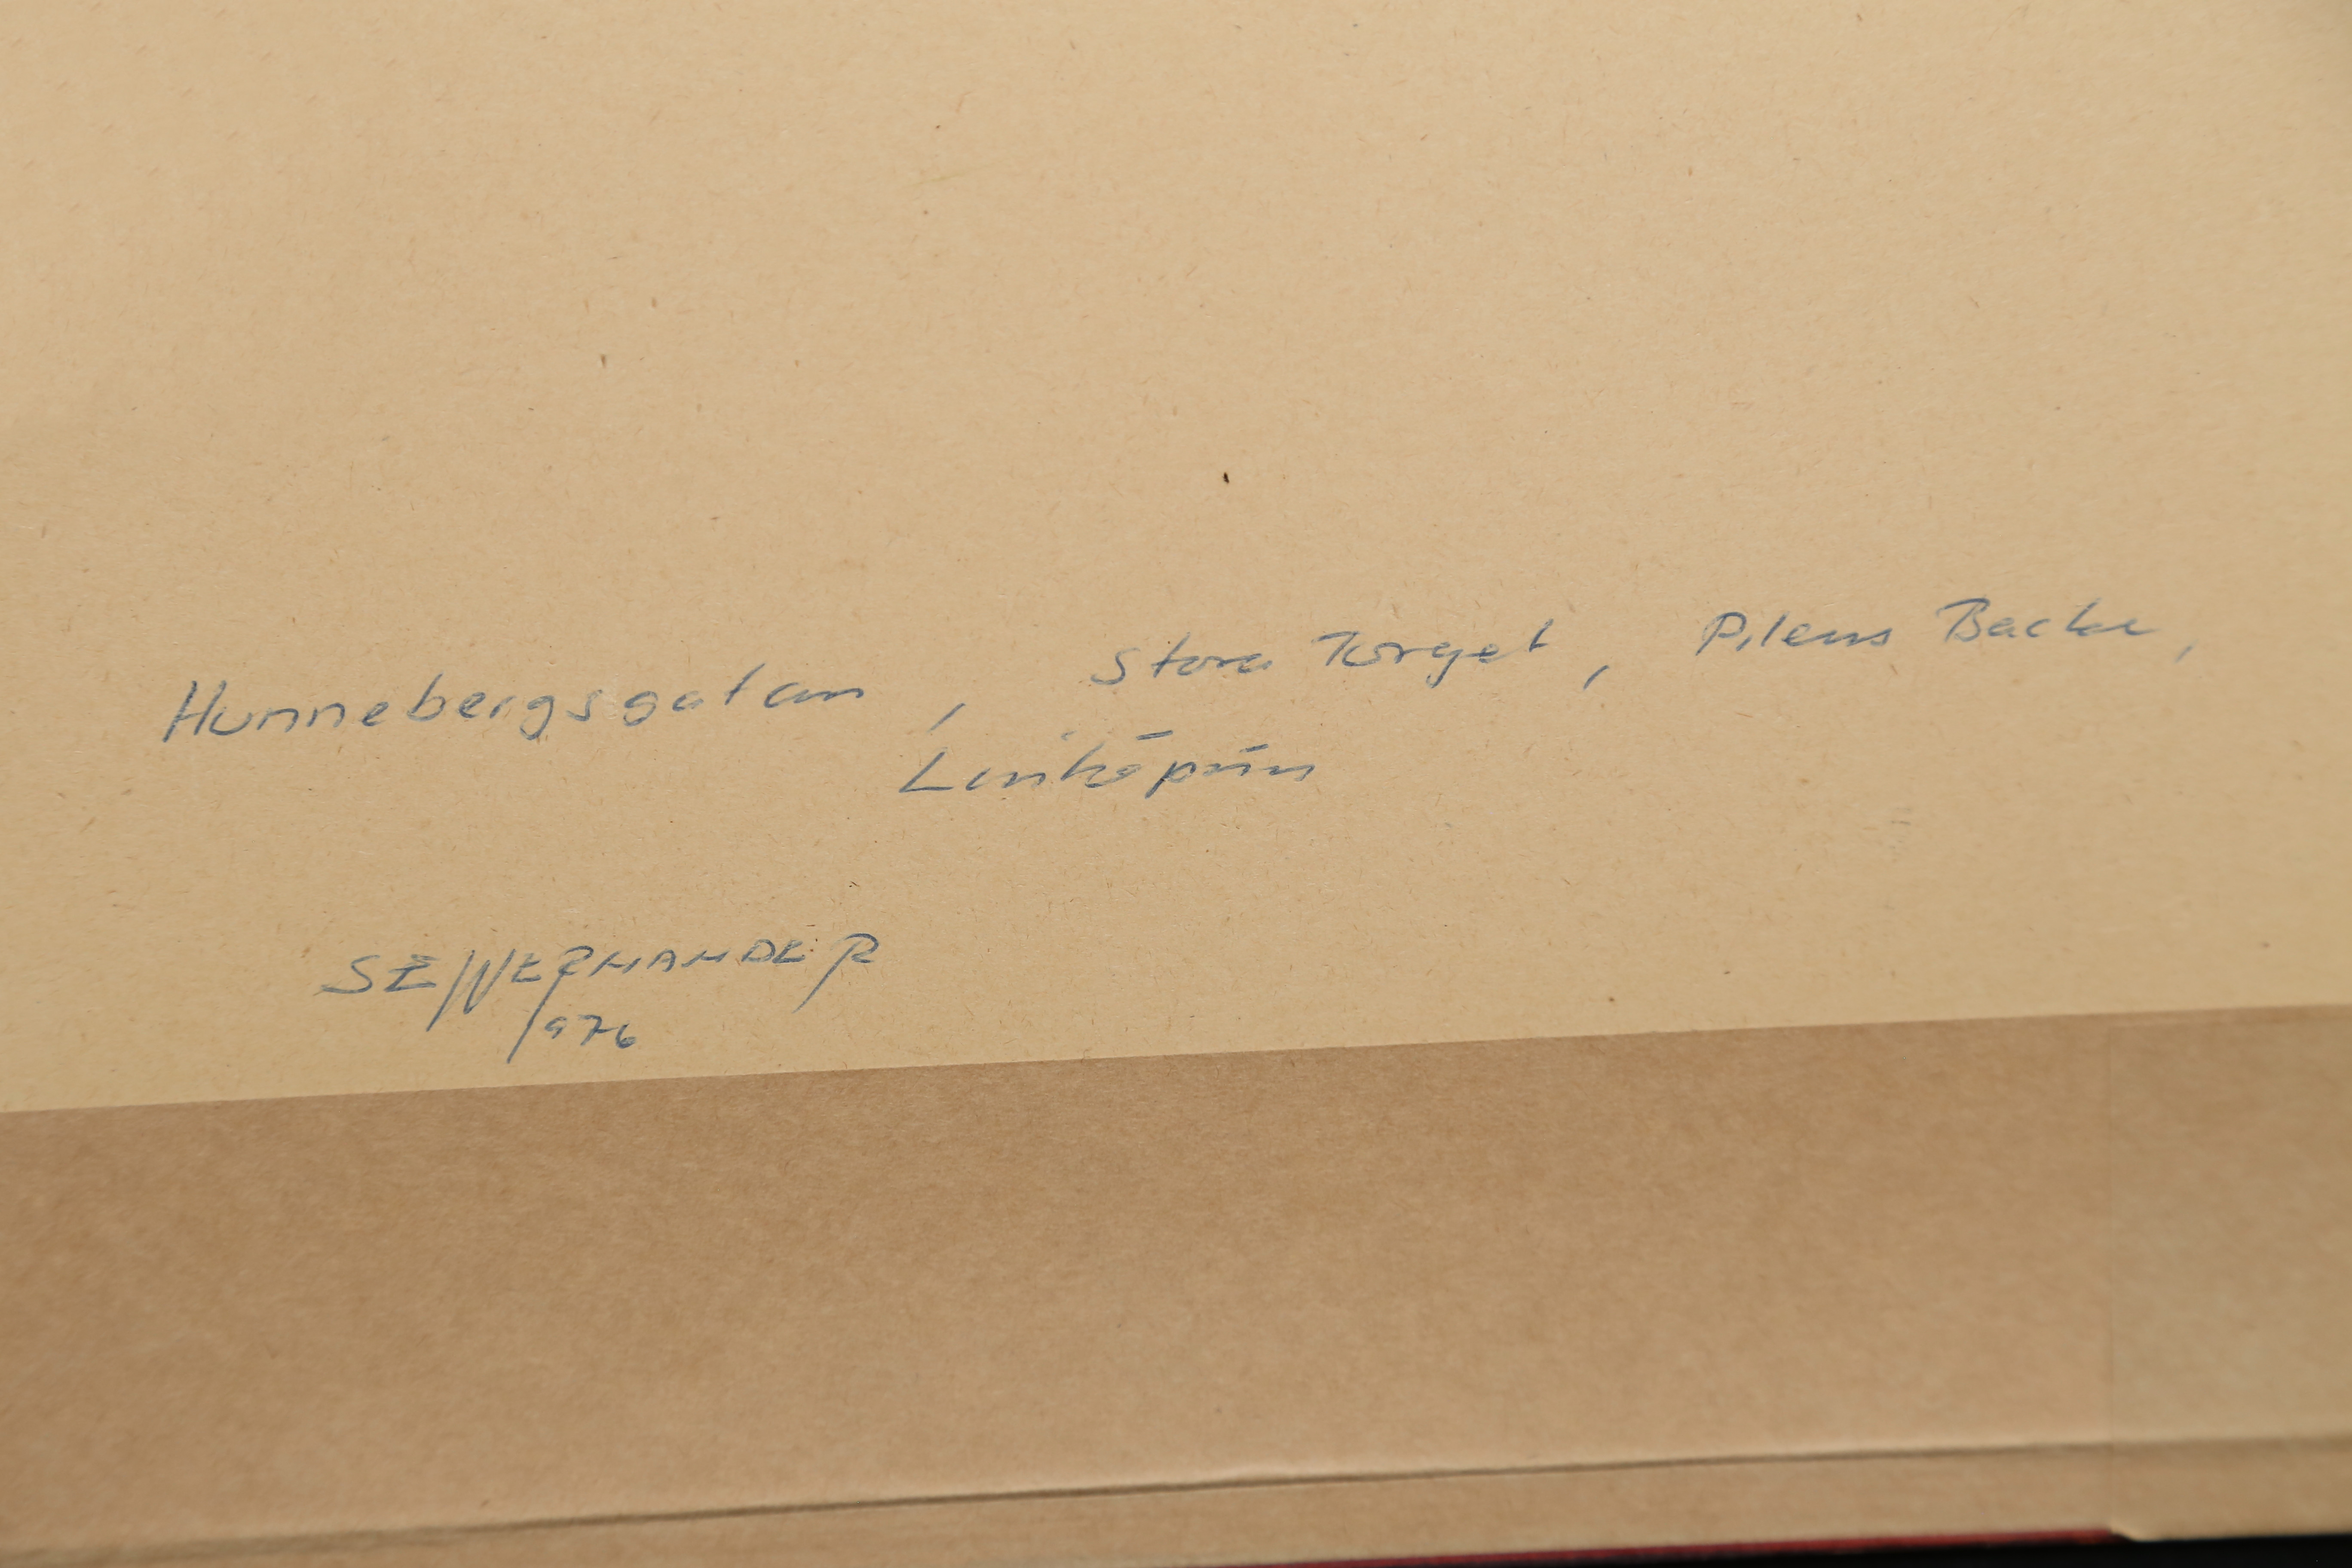 Hunnebergsgatan, Stora Torget, Pilens Backe,
Linköping
SEWERNANDER
1976